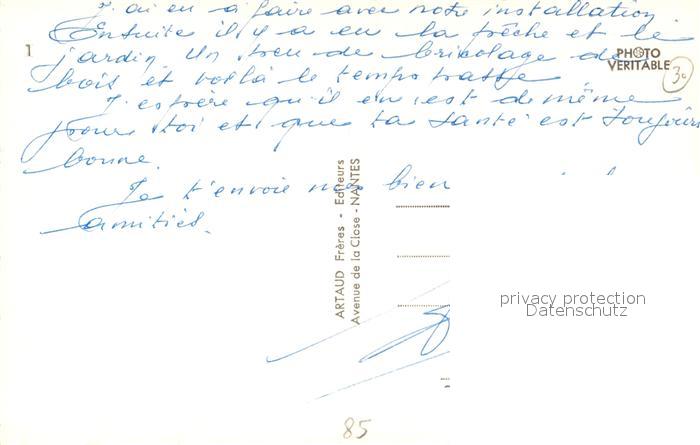 J'ai eu à faire avec notre installation.
Ensuite il y a eu la pêche et le
jardin. Un peu de bricolage de
bois et voilà le temps passe
J'espère qu'il en est de même
pour toi et que ta santé est toujours
bonne.
Je t'envoie mes bien
amitiés.
1
PHOTO
VÉRITABLE
30
ARTAUD Frères - Editeurs
Avenue de la Close - NANTES
privacy protection
Datenschutz
85